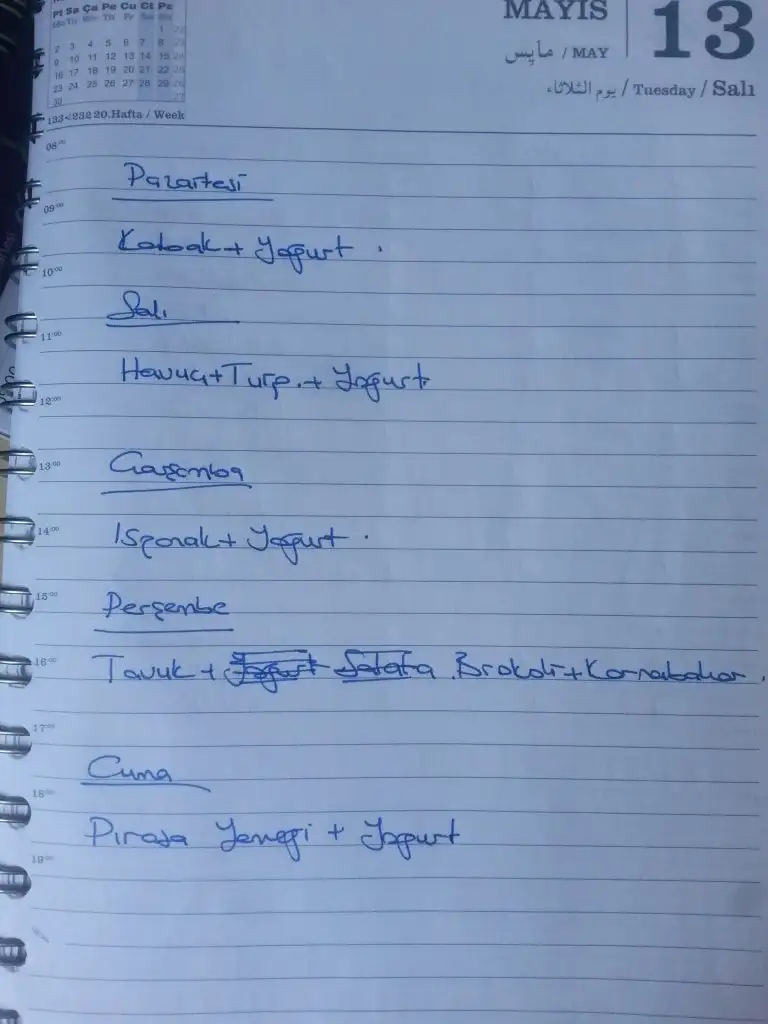 Pt Sa Ça Pe Cu Ct Pz
Mo Tu We Th Fr Sa Su
1
2 3 4 5 6 7 8
9 10 11 12 13 14 15
16 17 18 19 20 21 22
23 24 25 26 27 28 29
30
133<232 20.Hafta / Week
MAYIS 13
مايس / MAY
يوم الثلاثاء / Tuesday / Salı
08:00
Pazartesi
09:00
Kabak + Yogurt .
10:00
Salı
11:00
Havuç + Turp. + Yogurt
12:00
13:00
Çarşemba
14:00
Ispanak + Yogurt .
15:00
Perşembe
16:00
Tavuk + Yogurt Salata Brokoli + Karnabahar .
17:00
Cuma
18:00
Pırasa Yemeği + Yogurt
19:00